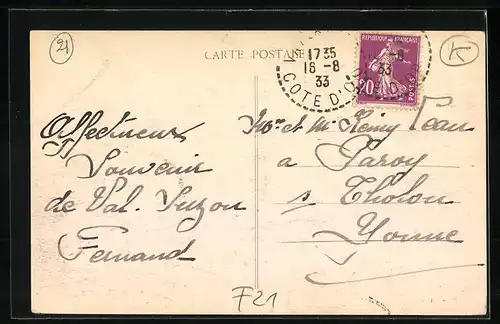 21
CARTE POSTALE
K
17 35
18 - 8
33
COTE D'OR
REPUBLIQUE FRANÇAISE
20
POSTES
8
33
Affectueux
Souvenir
de Val-Suzon
Fernand
Mme et Mr Rémy Jean
a Paroy
s Tholon
Yonne
F21